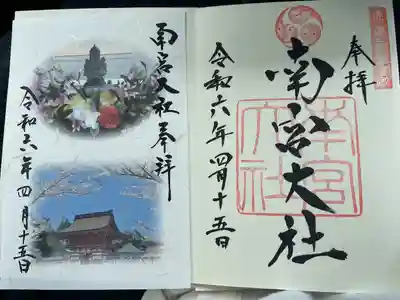 奉拝
南宮大社
令和六年四月十五日
南宮大社
南宮大社奉拝
令和六年四月十五日